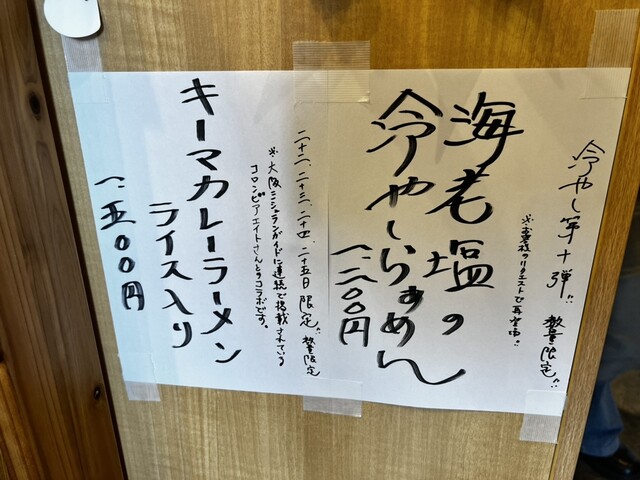 冷やし第十弾!! 数量限定!!
※お客様のリクエストで再登場!!
海老塩の
冷やしらぁめん
一、二〇〇円
二十二、二十三、二十四、二十五日限定!! 数量限定
※大阪ミシュランガイドに連続で掲載されている
コロンビアエイトさんとのコラボです。
キーマカレーラーメン
ライス入り
一、五〇〇円